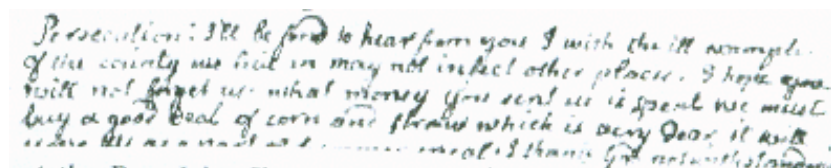 Persecution: I'll be fond to hear from you I wish the ill example
of the county we live in may not infect other places. I hope you
will not forget us. what money you sent us is spent we must
buy a good Deal of corn and straw which is very Dear it will
meal. I thank God